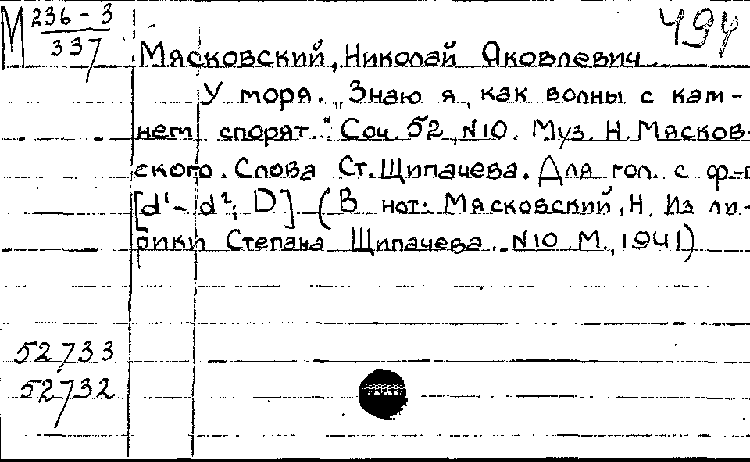 М 236-3
337
494
Мясковский, Николай Яковлевич.
У моря. „Знаю я, как волны с кам-
нем спорят." Соч. 52, N10. Муз. Н. Мясков-
ского. Слова Ст. Щипачева. Для гол. с ф-п
[d¹-d²; D] (В нот: Мясковский, Н. Из ли-
рики Степана Щипачева. N10 М., 1941)
52733
52732